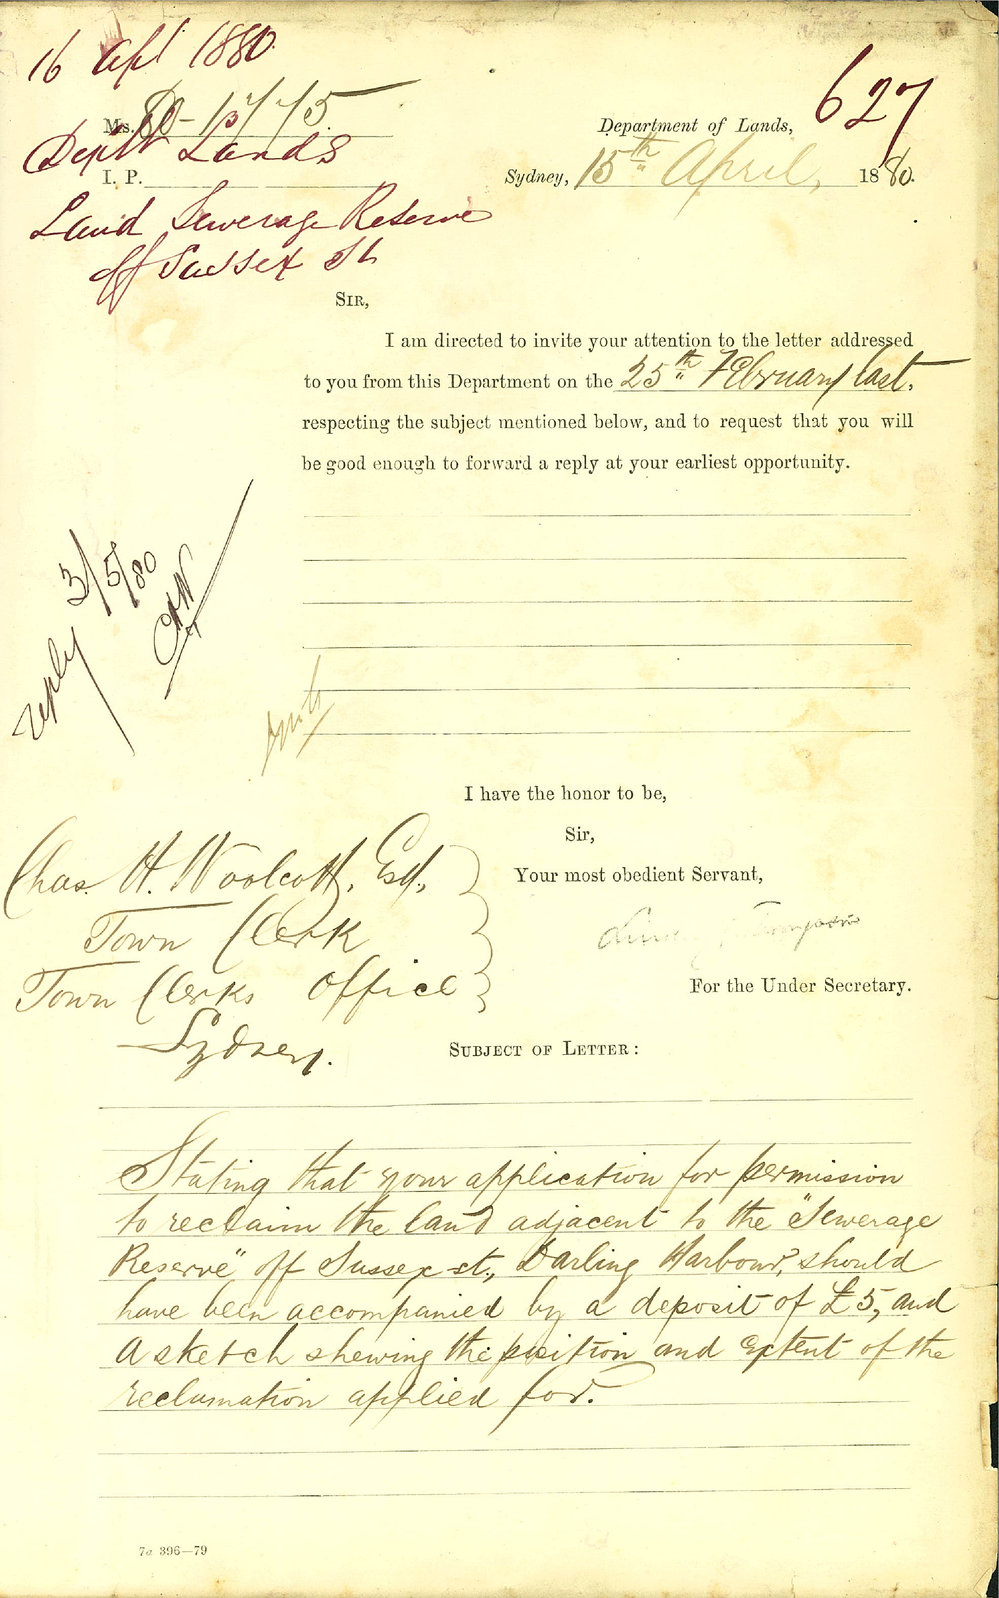 16 Apl 1880
627
Ms. 80-1775
Department of Lands,
Deptt Lands
I. P.
Sydney, 15th April, 1880.
Land Sewerage Reserve
off Sussex St
SIR,
I am directed to invite your attention to the letter addressed
to you from this Department on the 25th February last,
respecting the subject mentioned below, and to request that you will
be good enough to forward a reply at your earliest opportunity.
reply 3/5/80
CHW
I have the honor to be,
Sir,
Your most obedient Servant,
Chas. H. Woolcott, Esq.,
Town Clerk
Town Clerks Office
Sydney.
For the Under Secretary.
SUBJECT OF LETTER:
Stating that your application for permission
to reclaim the land adjacent to the "Sewerage
Reserve" off Sussex st., Darling Harbour, should
have been accompanied by a deposit of £5, and
a sketch shewing the position and extent of the
reclamation applied for.
7a 396—79